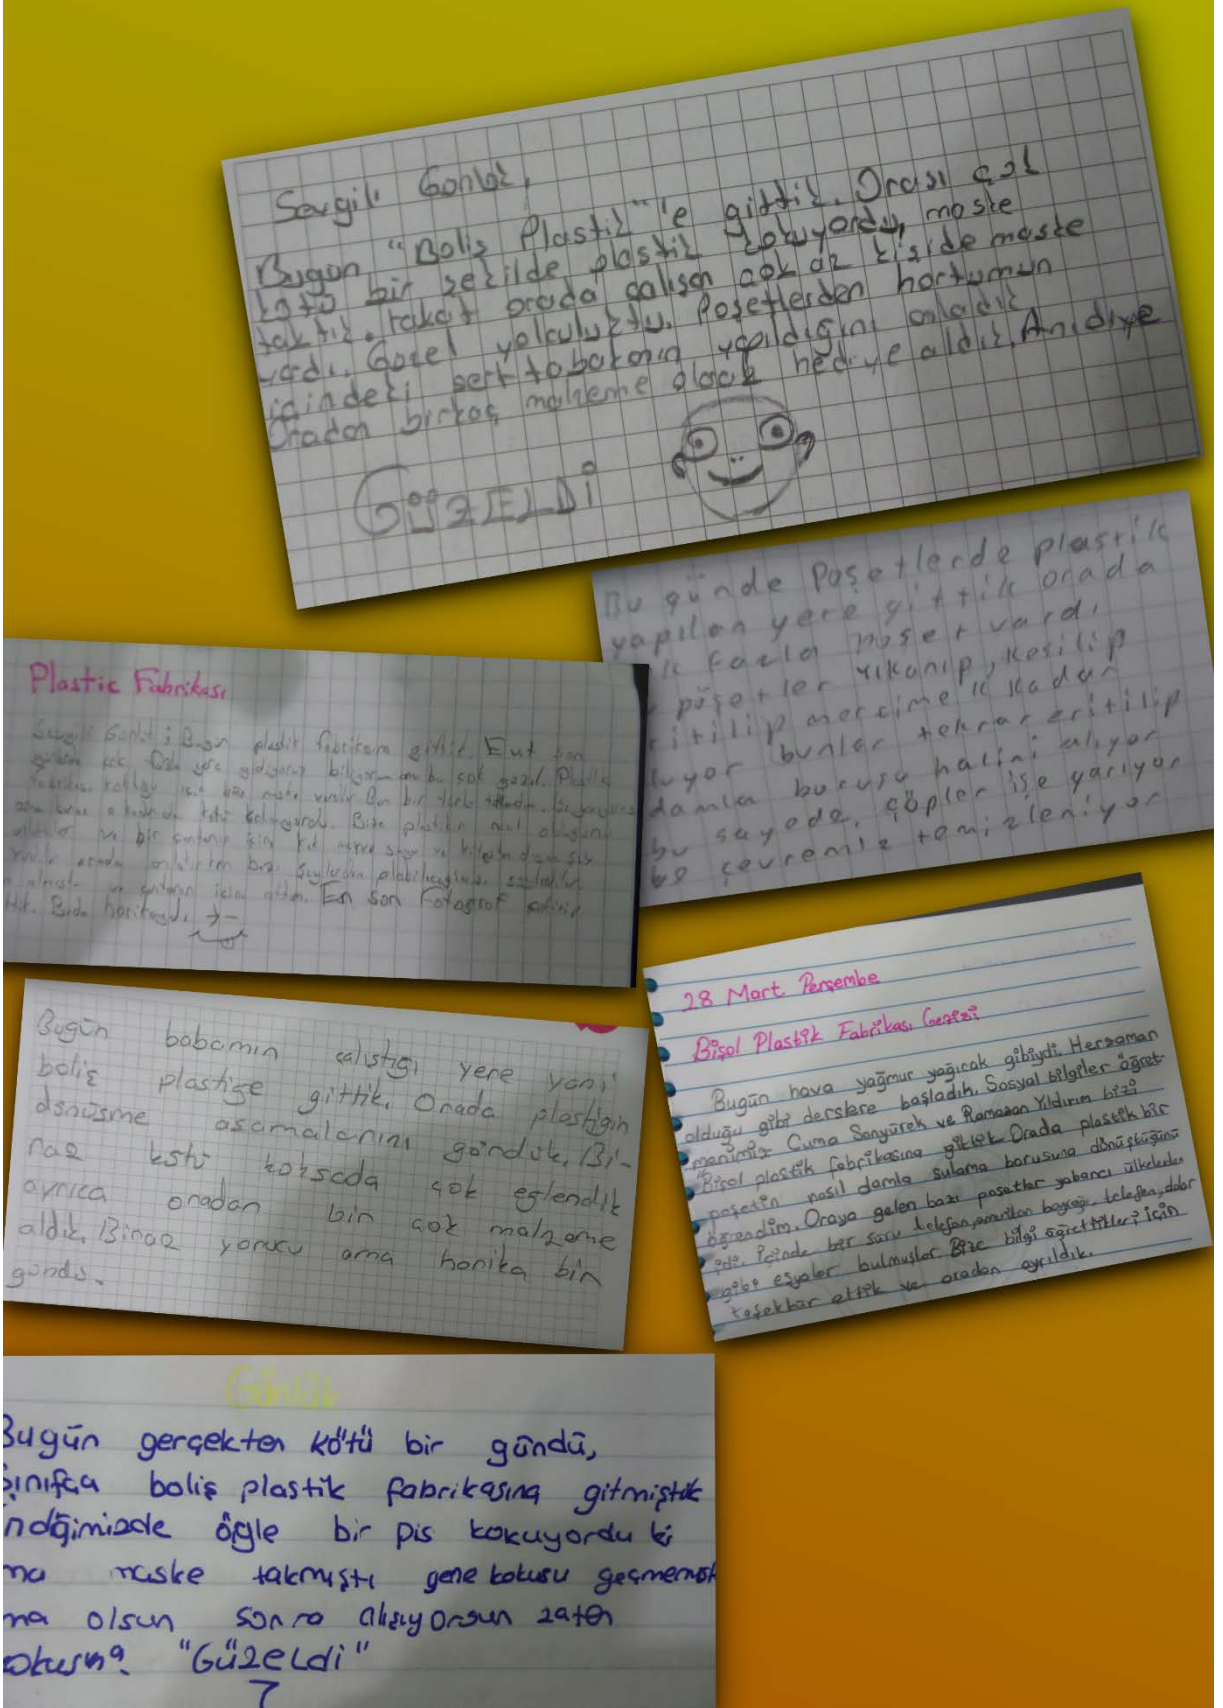 Sevgili Günlük,
Bugün "Boliş Plastik"'e gittik. Orası çok
kötü bir şekilde plastik kokuyordu, maske
taktık. Fakat orada çalışan çok az kişide maske
vardı. Güzel yolculuktu. Poşetlerden hortumun
içindeki sert tabakanın yapıldığını anladık
Oradan birkaç malzeme olarak hediye aldık. Anı diye
GÜZELDİ
Bu günde Poşetlerde plastik
yapılan yere gittik orada
fazla poşet vardı
poşetler yıkanıp, kesilip
ritilip mercime k kadar
luyor bunlar tekrar eritilip
damla borusu halini alıyor
bu sayede, çöpler işe yarıyor
be çevremiz temizleniyor
Plastic Fabrikası
Sevgili Günlük : Bugün plastik fabrikasına gittik. Evet son
günlerde çok fazla yere gidiyoruz biliyorum ama bu çok güzel. Plastik
için bize maske verdiler Ben bir tane
kötü kokmuyordu. Bize plastiğin nasıl olduğunu
ve bir çantanın içine
orada bazı şeylerden alabileceğimizi söylediler
ve çantanın içine attım. En son Fotoğraf çekinip
tik. Buda harikaydı.
Bugün babamın çalıştığı yere yani
boliş plastiğe gittik. Orada plastiğin
dönüşme aşamalarını gördük. Bi-
raz kötü koksada çok eğlendik
ayrıca oradan bir çok malzeme
aldık. Biraz yorucu ama harika bir
gündü.
28 Mart Perşembe
Bişol Plastik Fabrikası Gezisi
Bugün hava yağmur yağıcak gibiydi. Herzaman
olduğu gibi derslere başladık. Sosyal bilgiler öğret-
menimiz Cuma Sarıyürek ve Ramazan Yıldırım bizi
Bişol plastik fabrikasına götürdü. Orada plastik bir
poşetin nasıl damla sulama borusuna dönüştüğünü
öğrendim. Oraya gelen bazı poşetler yabancı ülkelerden
idi. İçinde bir sürü telefon, amerikan bayrağı, telefon, dolar
gibi eşyalar bulmuşlar. Bize bilgi öğrettikleri için
teşekkür ettik ve oradan ayrıldık.
Günlük
Bugün gerçekten kötü bir gündü,
sınıfça boliş plastik fabrikasına gitmiştik
ndğimizde öyle bir pis kokuyordu ki
ma maske takmıştı gene kokusu geçmemişt
ma olsun sonra alışıyorsun zaten
okusuna. "GüzeLdi"